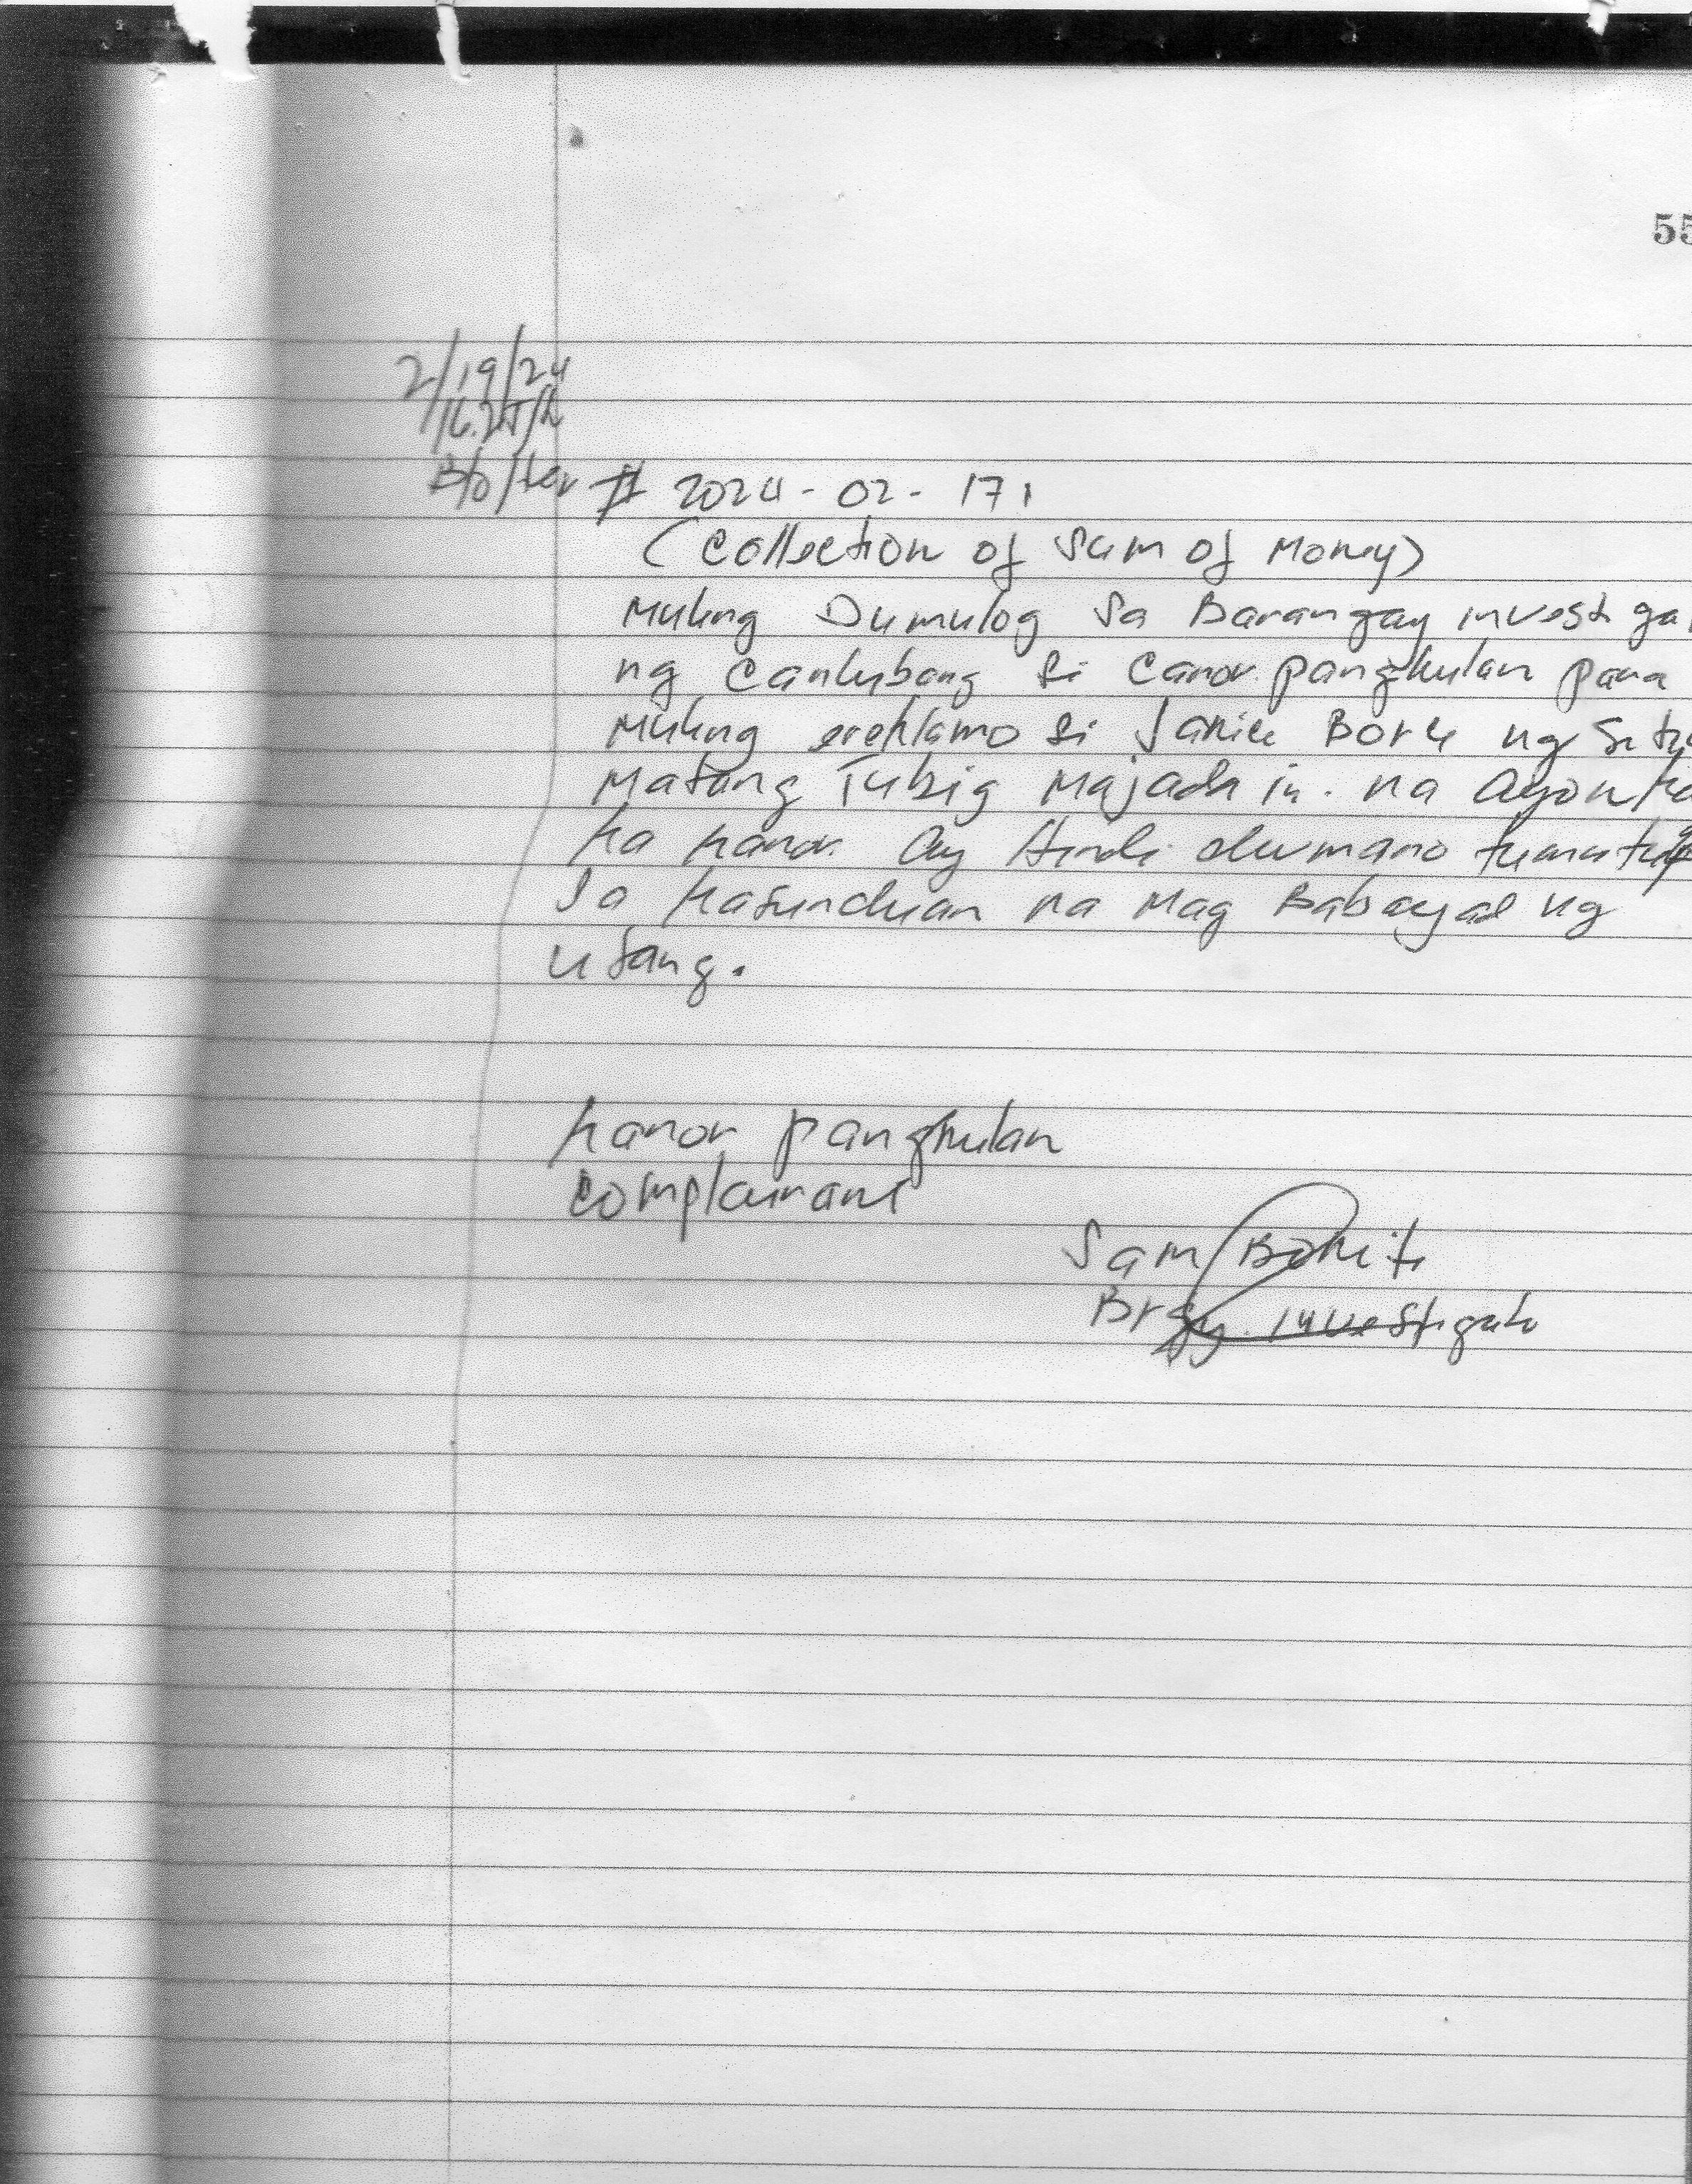 55
2/19/24
16:25/h
B/o/ter # 2024-02-171
(Collection of Sum of Money)
Muling Dumulog sa Barangay investiga
ng Canlubang si Canor pangkulan para
Muling ereklamo si Janice Bore ng Sity
Matang Tubig Majada in. na Ayon ka
ka kanor Ay Hindi dumano tumutup
Sa Kasunduan na Mag Babayad ng
utang.
kanor pangkulan
complainant
Sam Bonite
Brgy. Investigato